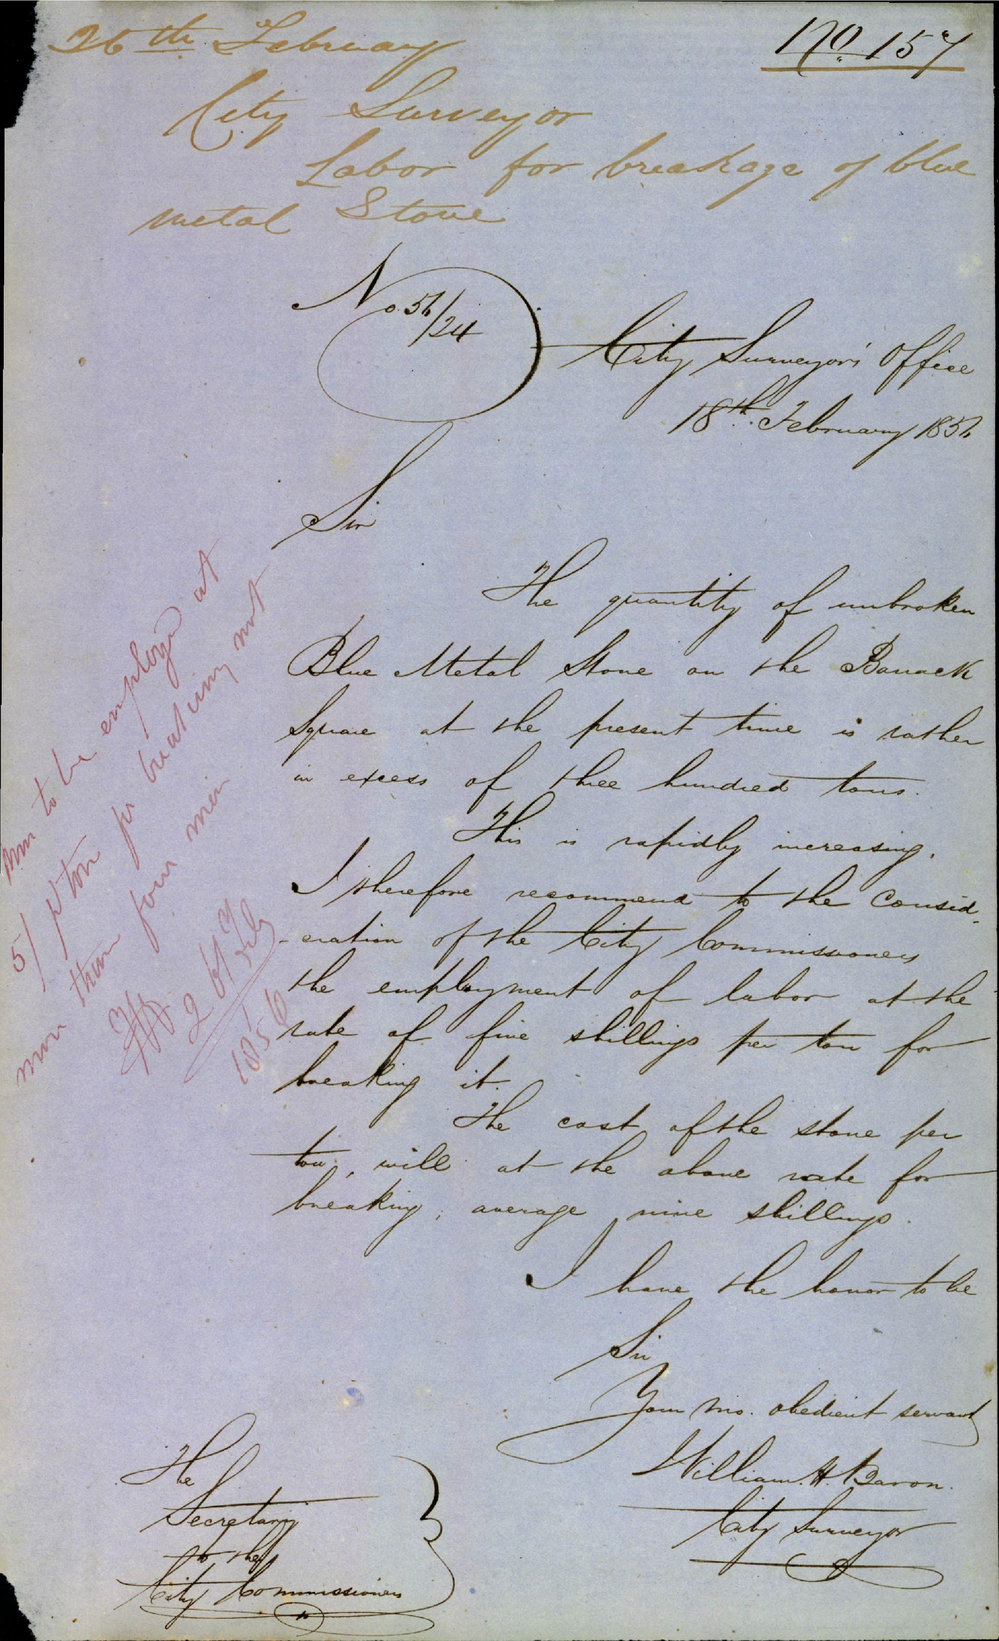 26th February
No. 157
City Surveyor
Labor for breakage of blue
metal Stone
No. 56/24
City Surveyor's Office
18th February 1856
Sir
The quantity of unbroken
Blue Metal Stone on the Barrack
Square at the present time is rather
in excess of three hundred tons.
This is rapidly increasing.
I therefore recommend to the consid-
-eration of the City Commissioners
the employment of labor at the
rate of five shillings per ton for
breaking it.
The cost of the stone per
ton, will at the above rate for
breaking, average nine shillings.
I have the honor to be
Sir
Your mo. obedient servant
William. H. Baron.
City Surveyor
The
Secretary
to the
City Commissioners
Men to be employed at
5/ p ton pr breaking not
more than four men
26th Feby
1856